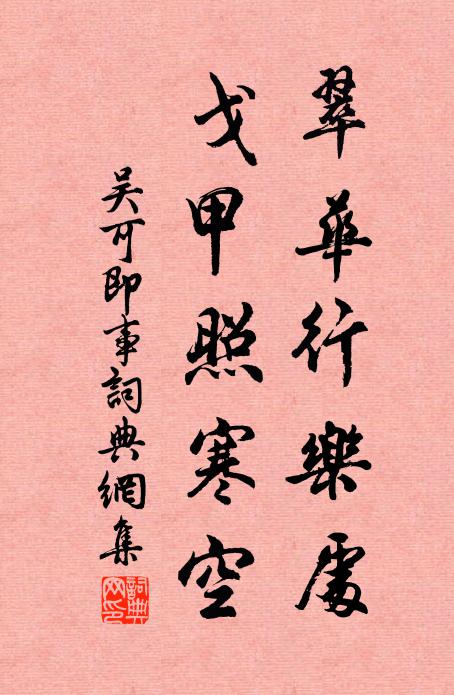 翠華行樂處
戈甲照寒空
吴可即事詞典網集
詞典网印